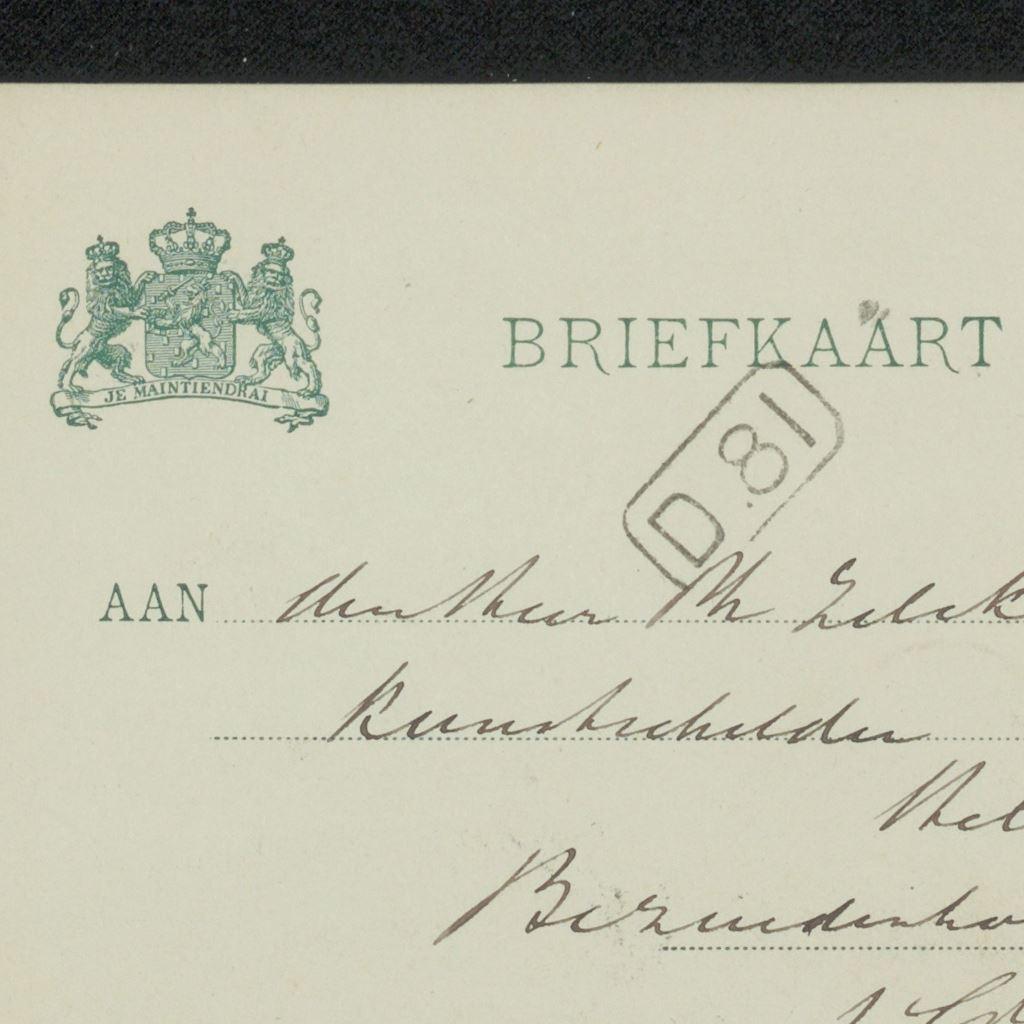 JE MAINTIENDRAI
BRIEFKAART
D.81
AAN den Heer Ph Zilck
Kunstschilder
Bezuidenho